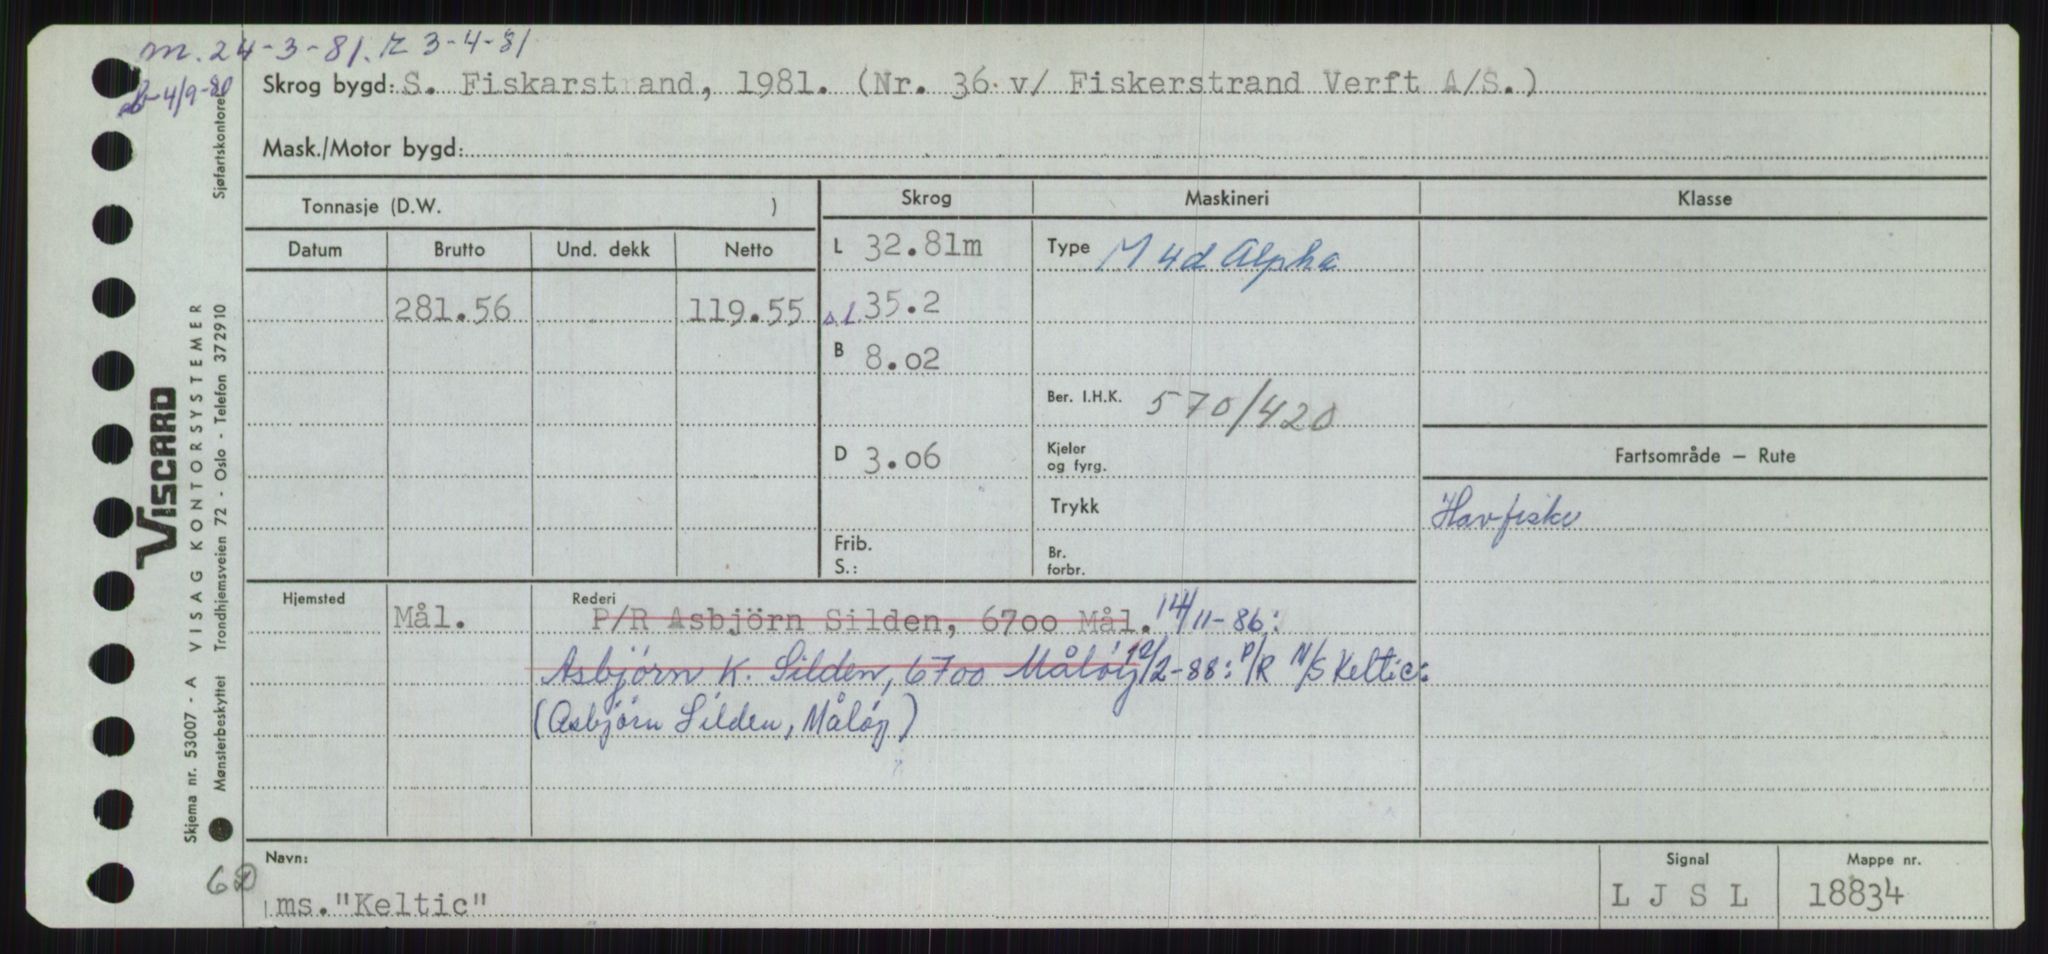 m. 24-3-81. r 3-4-81
4/9-80
Skrog bygd: S. Fiskarstrand, 1981. (Nr. 36 v/ Fiskerstrand Verft A/S.)
Mask./Motor bygd:
Sjøfartskontoret
Tonnasje (D.W. )
Skrog
Maskineri
Klasse
Datum Brutto Und. dekk Netto
L 32.81m
Type M 4d Alpha
281.56 119.55
ΔL 35.2
B 8.02
Ber. I.H.K. 570/420
D 3.06
Kjeler
og fyrg.
Fartsområde – Rute
Trykk
Havfiske
Frib.
S.:
Br.
forbr.
Hjemsted
Mål.
Rederi
P/R Asbjörn Silden, 6700 Mål. 14/11-86:
Asbjørn K. Silden, 6700 Måløy 12/2-88: P/R M/S Keltic:
(Asbjørn Silden, Måløy)
Navn:
ms. "Keltic"
Signal
L J S L
Mappe nr.
18834
VISCARD
Skjema nr. 53007 - A VISAG KONTORSYSTEMER
Mønsterbeskyttet Trondhjemsveien 72 - Oslo - Telefon 372910